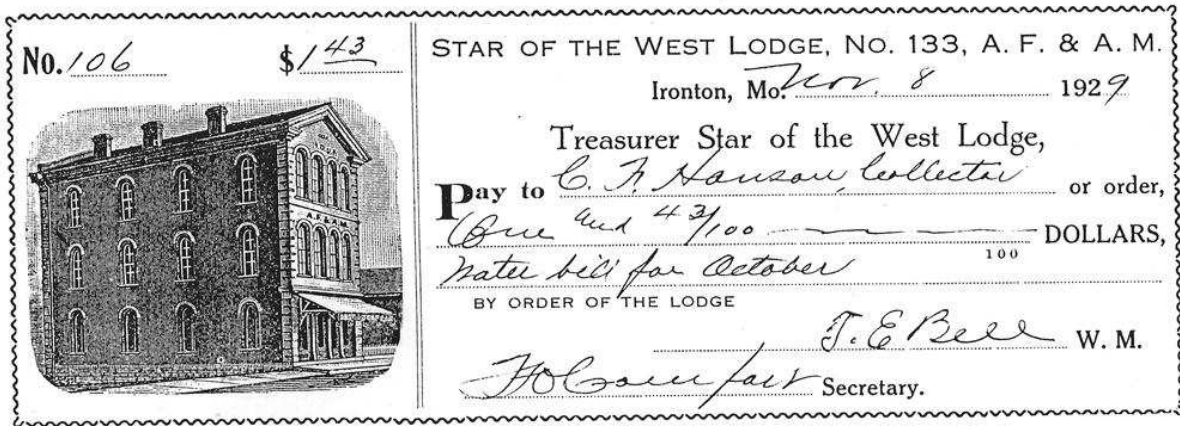 No. 106 $1 43
STAR OF THE WEST LODGE, NO. 133, A. F. & A. M.
Ironton, Mo. Nov. 8 1929
Treasurer Star of the West Lodge,
Pay to C. F. Hanson, Collector or order,
One and 43/100 DOLLARS,
100
Water bill for October
BY ORDER OF THE LODGE
T. E. Bell W. M.
Secretary.
A.F.&A.M.